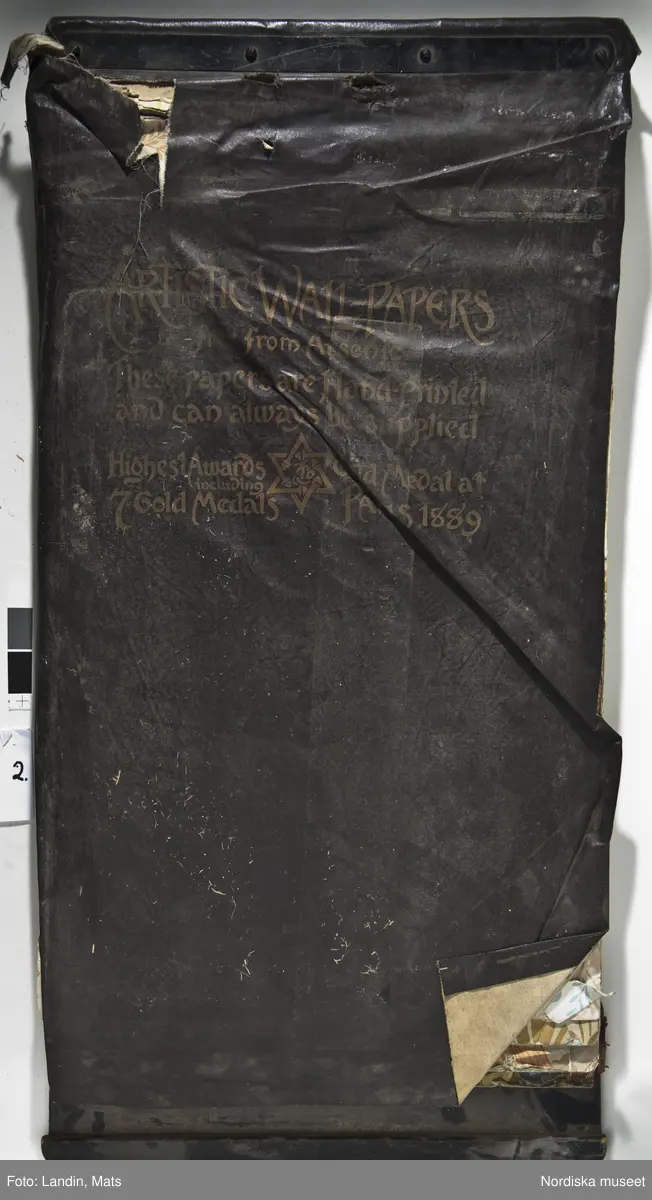 ARTISTIC WALL-PAPERS
from Arsenic
These papers are Hand-Printed
and can always be supplied
Highest Awards
including
7 Gold Medals
Gold Medal at
PARIS 1889
2.
Foto: Landin, Mats
Nordiska museet